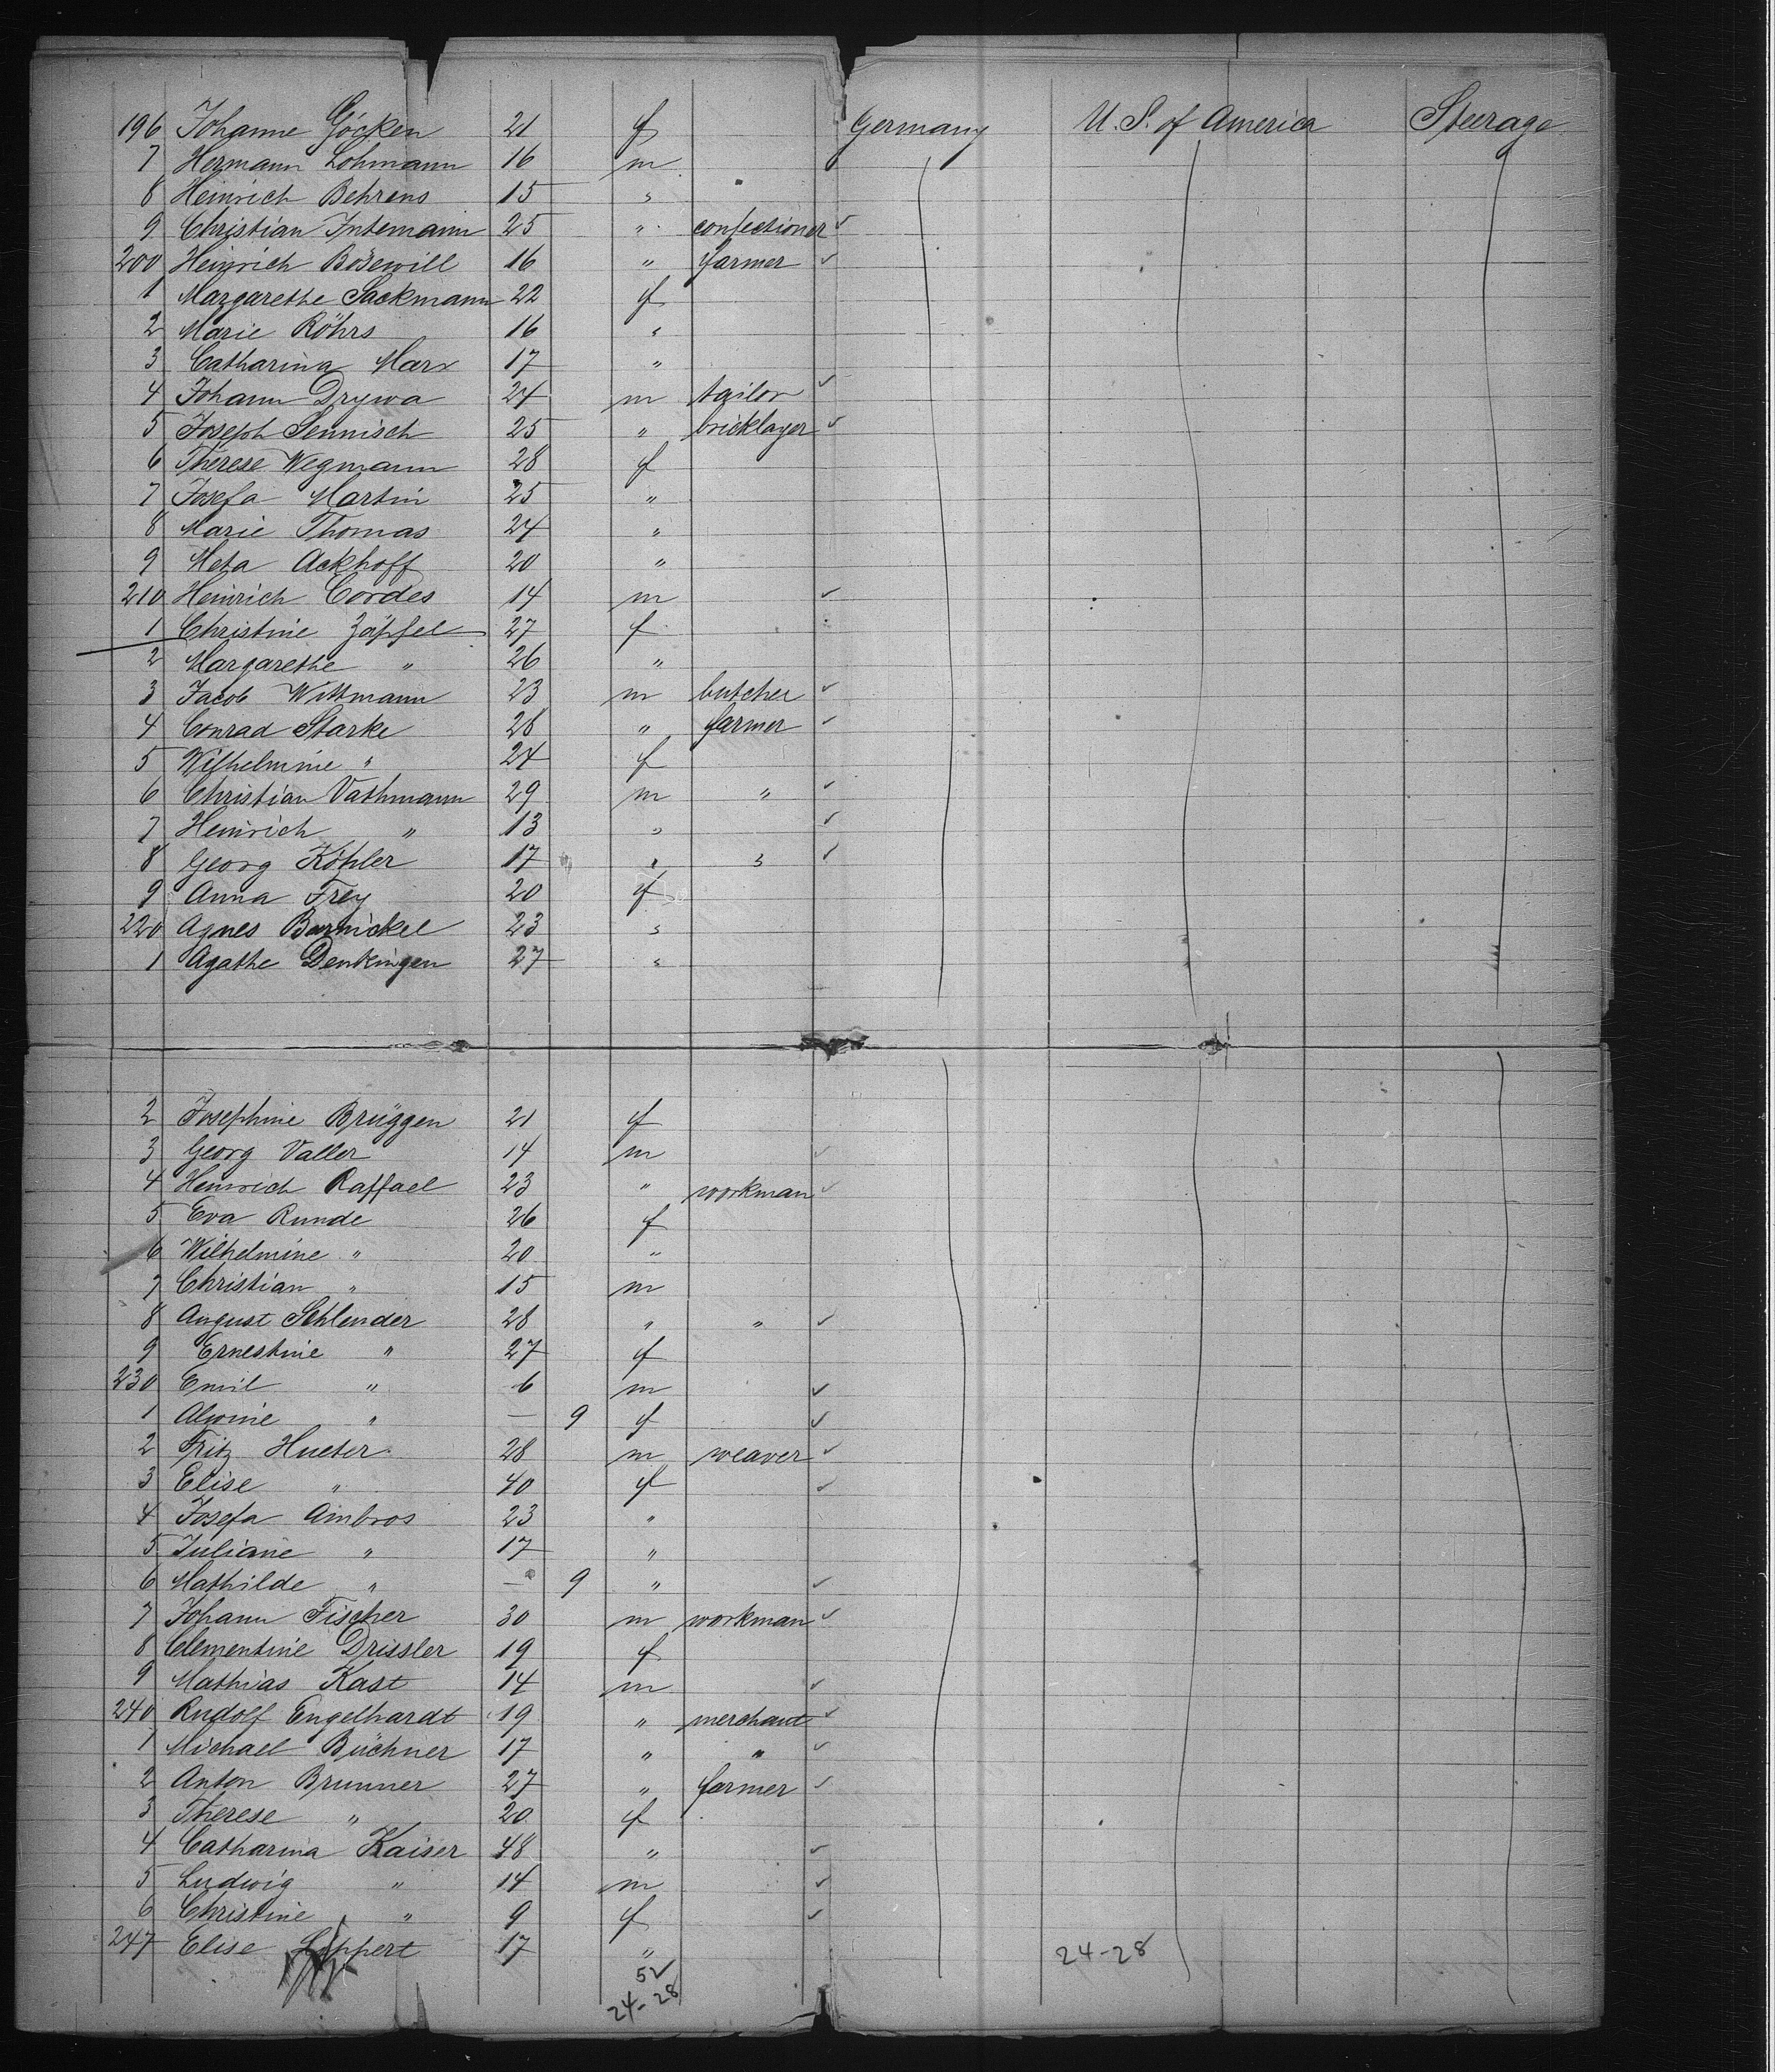 196 Johanne Göcken 21 f Germany U. S. of America Steerage
7 Hermann Lohmann 16 m
8 Heinrich Behrens 15 "
9 Christian Intemann 25 " confectioner ✓
200 Heinrich Bösewill 16 " farmer ✓
1 Margarethe Sackmann 22 f
2 Marie Röhrs 16 "
3 Catharina Marx 17 "
4 Johann Drywa 24 m tailor ✓
5 Joseph Sennisch 25 " bricklayer ✓
6 Therese Wegmann 28 f
7 Josefa Martin 25 "
8 Marie Thomas 24 "
9 Meta Ackhoff 20 "
210 Heinrich Cordes 14 m ✓
1 Christine Zäpfel 27 f
2 Margarethe " 26 "
3 Jacob Wittmann 23 m butcher ✓
4 Conrad Starke 28 " farmer ✓
5 Wilhelmine " 24 f
6 Christian Vathmann 29 m " ✓
7 Heinrich " 13 " ✓
8 Georg Köhler 17 " " ✓
9 Anna Frey 20 f
220 Agnes Barnickel 23 "
1 Agathe Denkingen 27 "
2 Josephine Brüggen 21 f
3 Georg Valler 14 m ✓
4 Heinrich Raffael 23 " workman ✓
5 Eva Runde 26 f
6 Wilhelmine " 20 "
7 Christian " 15 m
8 August Schlender 28 " " ✓
9 Ernestine " 27 f
230 Emil " 6 m ✓
1 Alwine " — 9 f ✓
2 Fritz Hueter 28 m weaver ✓
3 Elise " 40 f ✓
4 Josefa Ambros 23 "
5 Juliane " 17 "
6 Mathilde " — 9 " ✓
7 Johann Fischer 30 m workman ✓
8 Clementine Drissler 19 f
9 Mathias Kast 14 m ✓
240 Rudolf Engelhardt 19 " merchant ✓
1 Michael Büchner 17 " " ✓
2 Anton Brunner 27 " farmer ✓
3 Therese " 20 f
4 Catharina Kaiser 48 " ✓
5 Ludwig " 14 m ✓
6 Christine " 9 f ✓
247 Elise Lippert 17 " 24-28
52
24-28